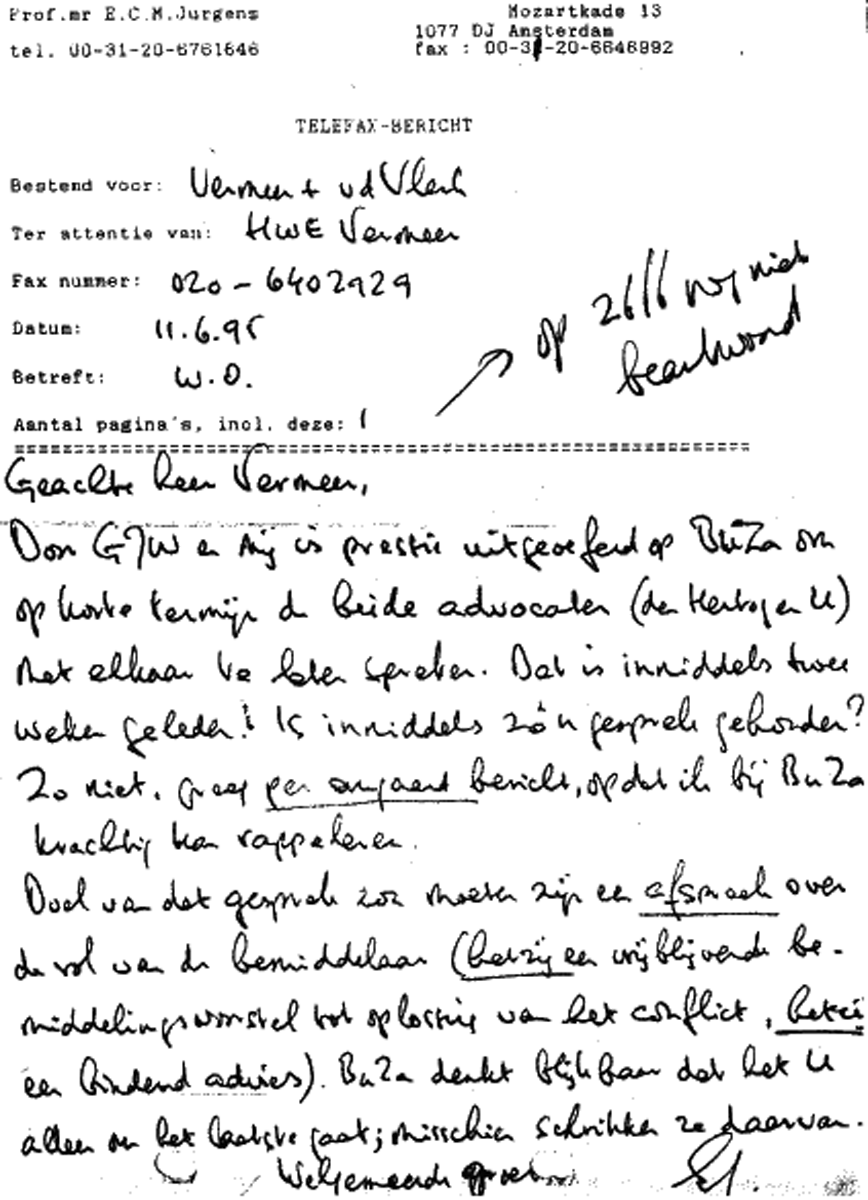 Prof.mr E.C.M.Jurgens
Mozartkade 13
1077 DJ Amsterdam
tel. 00-31-20-6761646
fax : 00-31-20-6646992
TELEFAX-BERICHT
Bestemd voor: Vermeer + vd Vlerk
Ter attentie van: HWE Vermeer
Fax nummer: 020-6402929
Datum: 11.6.95
Betreft: W.O.
Aantal pagina's, incl. deze: 1
op 26/6 nog niet
beantwoord
Geachte heer Vermeer,
Door GJW en mij is pressie uitgeoefend op BuZa om
op korte termijn de beide advocaten (den Hertog en U)
met elkaar te laten spreken. Dat is inmiddels twee
weken geleden! Is inmiddels zo'n gesprek gehouden?
Zo niet, graag per omgaand bericht, opdat ik bij BuZa
krachtig kan rappeleren.
Doel van dat gesprek zou moeten zijn een afspraak over
de rol van de bemiddelaar (hetzij een vrijblijvende be-
middelingsvoorstel tot oplossing van het conflict, hetzij
een bindend advies). BuZa denkt blijkbaar dat het U
alleen om het laatste gaat; misschien schrikken ze daarvan.
Welgemeende groet